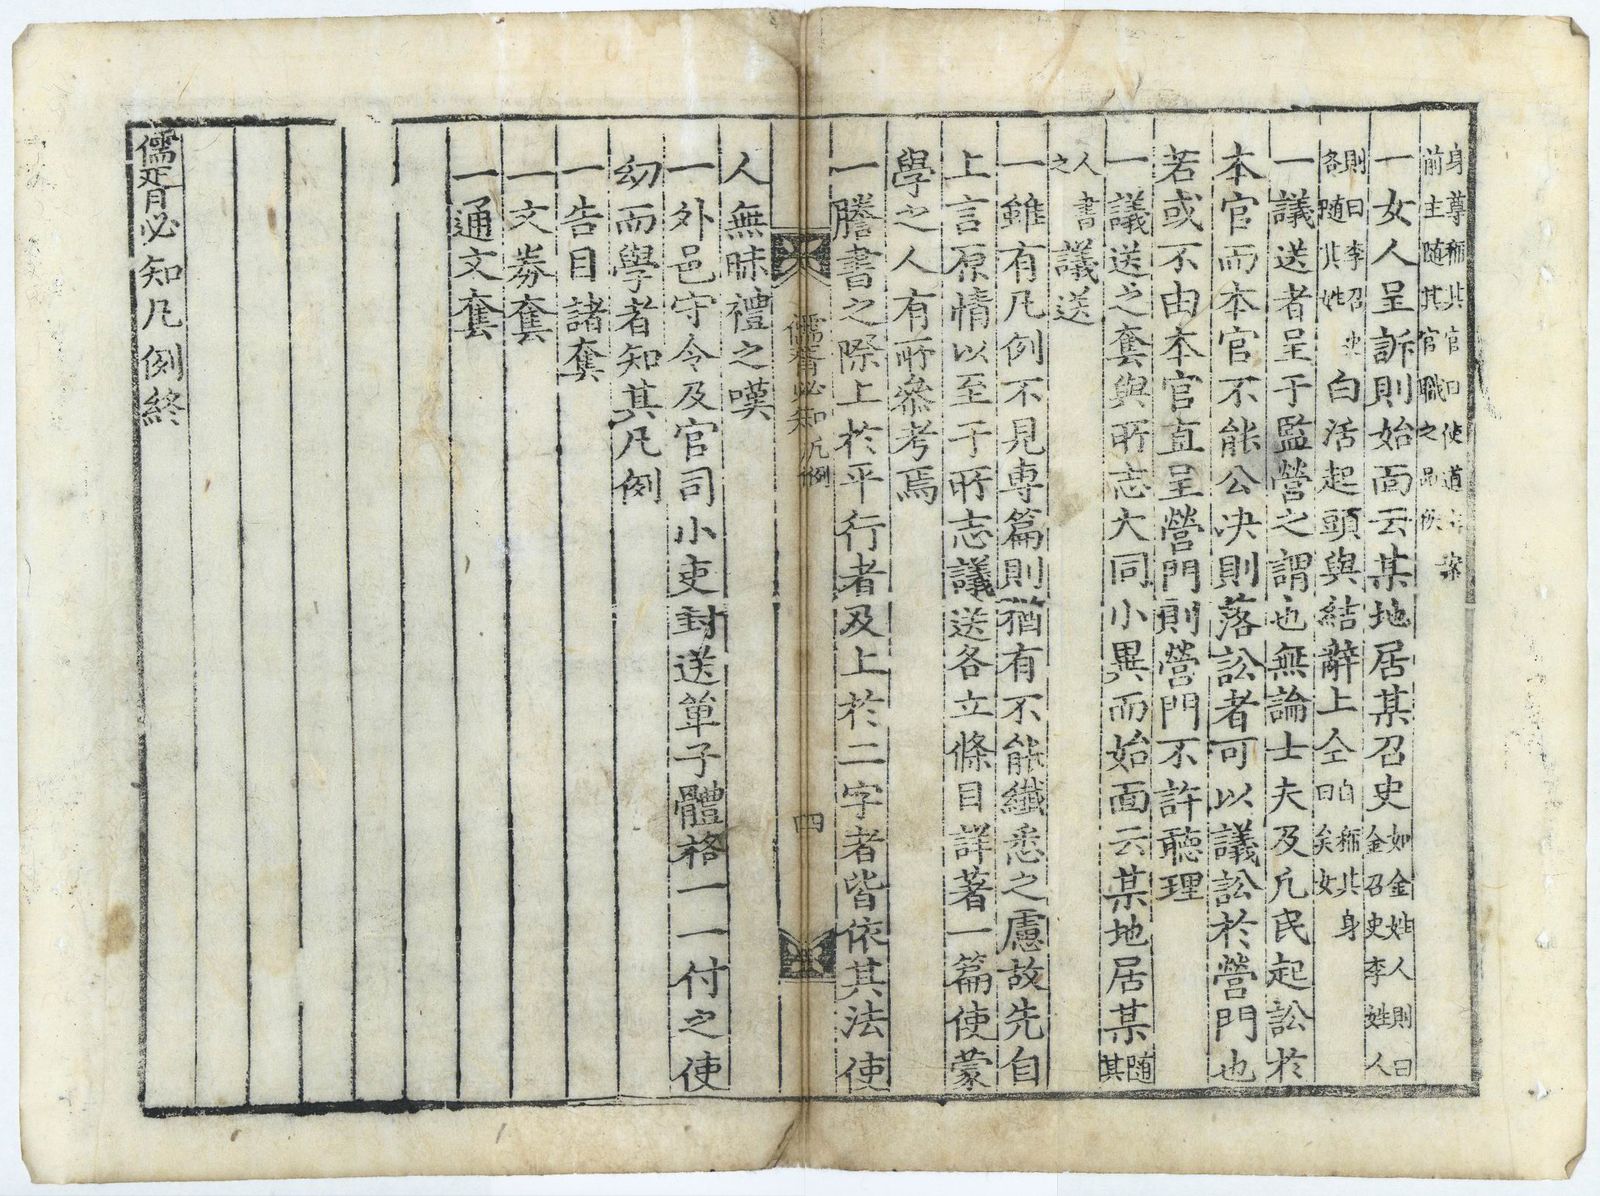 身尊稱其官曰使道主案
前主隨其官職之品依
一女人呈訴則始面云某地居某召史如金姓人則曰金召史李姓人
則曰李召史各隨其姓白活起頭與結辭上仝自稱其身曰矣女
一議送者呈于監營之謂也無論士夫及凡民起訟於
本官而本官不能公決則落訟者可以議訟於營門也
若或不由本官直呈營門則營門不許聽理
一議送之套與所志大同小異而始面云某地居某隨其
人書之議送
一雖有凡例不見專篇則猶有不能纖悉之慮故先自
上言原情以至于所志議送各立條目詳著一篇使蒙
學之人有所參考焉
一謄書之際上於平行者及上於二字者皆依其法使
儒胥必知 凡例 四
人無昧禮之嘆
一外邑守令及官司小吏封送單子體格一一付之使
幼而學者知其凡例
一告目諸套
一文券套
一通文套
儒胥必知凡例終